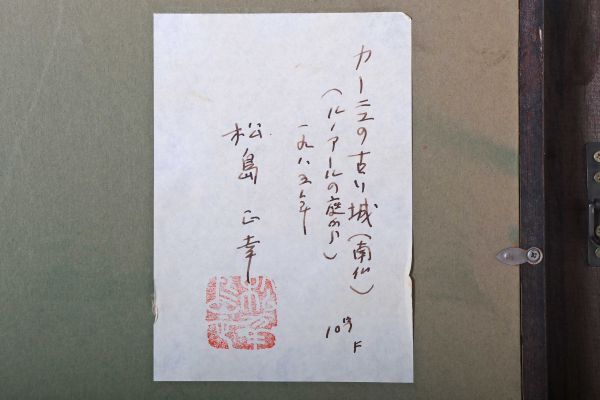 カーニュの古い城(南仏)
(ルノアールの庭から)
一九八五年
松島正幸
10号
F